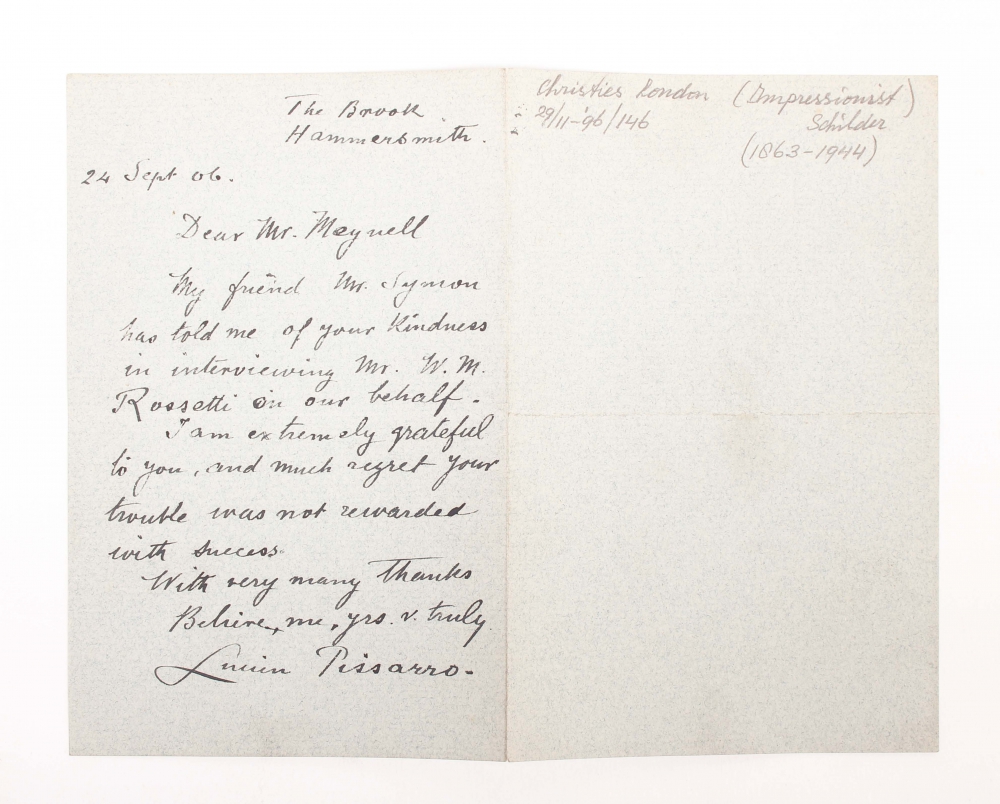 The Brook
Hammersmith.
24 Sept 06.
Dear Mr. Meynell
My friend Mr. Symon
has told me of your kindness
in interviewing Mr. W. M.
Rossetti on our behalf.
I am extremely grateful
to you, and much regret your
trouble was not rewarded
with success.
With very many thanks
Believe, me, yrs. v. truly
Lucien Pissarro-
Christies London (Impressionist)
29/11-'96/146 Schilder
(1863-1944)